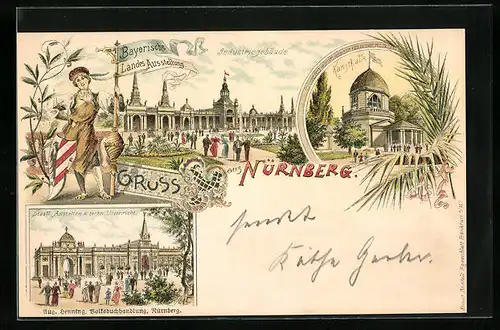 Bayerische
Landes Ausstellung
Industriegebäude
Kunsthalle
GRUSS aus NÜRNBERG.
sendet
Käthe Gerber.
Staatl. Anstalten u. techn. Unterricht.
Aug. Henning, Volksbuchhandlung, Nürnberg.